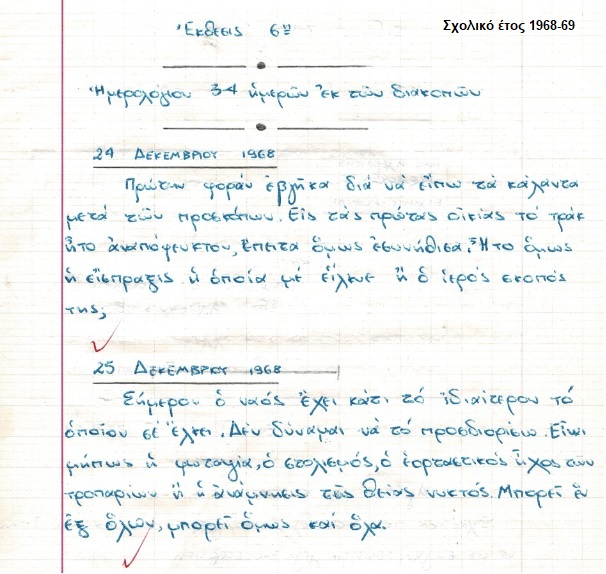 Σχολικό έτος 1968-69
Ἔκθεσις 6η
Ἡμερολόγιον 3-4 ἡμερῶν ἐκ τῶν διακοπῶν
24 ΔΕΚΕΜΒΡΙΟΥ 1968
Πρώτην φοράν ἐβγῆκα διά νὰ εἴπω τὰ κάλαντα
μετά τῶν προσκόπων. Εἰς τὰς πρώτας οἰκίας τό τράκ
ἦτο ἀναπόφευκτον, ἔπειτα ὅμως ἐσυνήθισα. Ἦτο ὅμως
ἡ εἴσπραξις ἡ ὁποία μέ εἷλκυε ἤ ὁ ἱερός σκοπός
της;
25 ΔΕΚΕΜΒΡΙΟΥ 1968
Σήμερον ὁ ναός ἔχει κάτι τό ἰδιαίτερον τό
ὁποῖον σέ ἕλκει. Δέν δύναμαι νὰ τό προσδιορίσω. Εἶναι
μήπως ἡ φωταψία, ὁ στολισμός, ὁ ἑορταστικός ἦχος τῶν
τροπαρίων ἤ ἡ ἀνάμνησις τῆς θείας νυκτός. Μπορεῖ ἕν
ἐξ ὅλων, μπορεῖ ὅμως καί ὅλα.